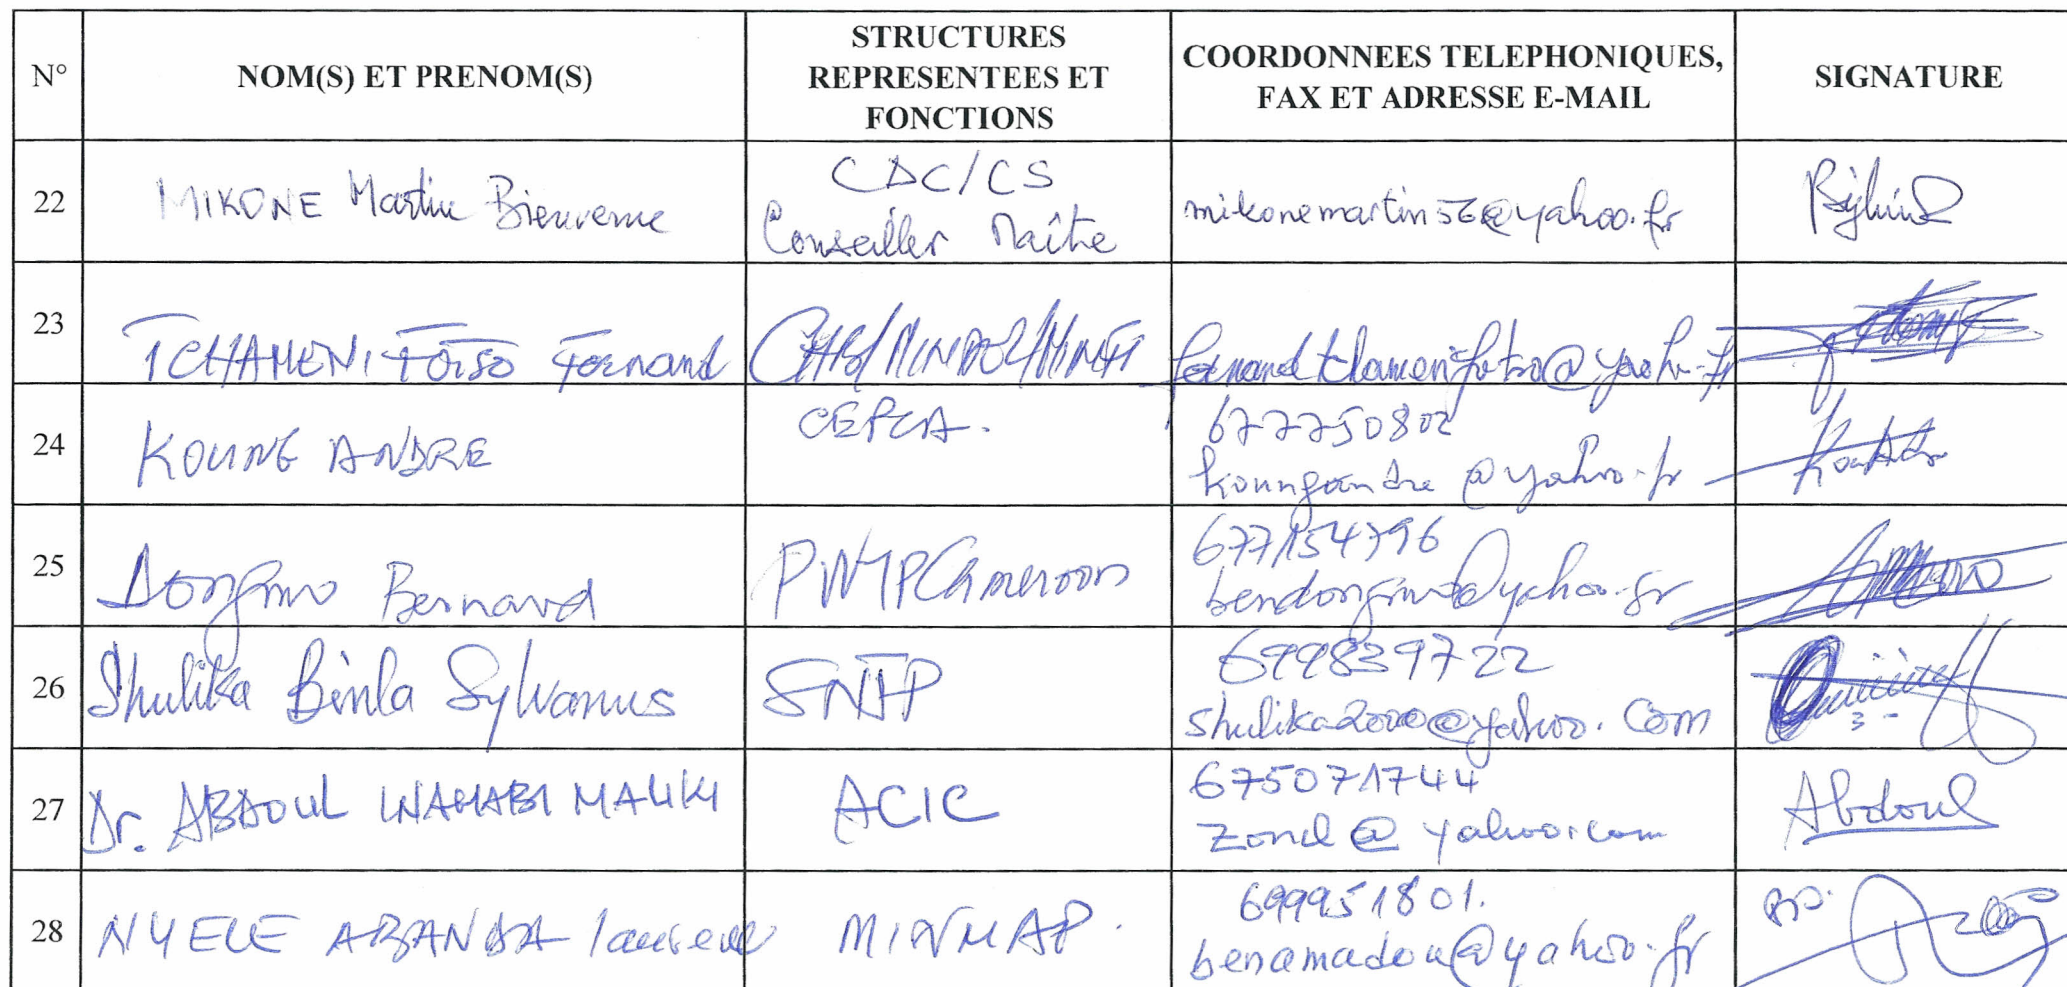 N°
NOM(S) ET PRENOM(S)
STRUCTURES
REPRESENTEES ET
FONCTIONS
COORDONNEES TELEPHONIQUES,
FAX ET ADRESSE E-MAIL
SIGNATURE
22
MIKONE Martin Bienvenue
CDC/CS
Conseiller Maître
mikonemartin56@yahoo.fr
23
TCHAMENI FOTSO Fernand
24
KOUNG ANDRE
CEPCA.
677750802
koungandre@yahoo.fr
25
Dongmo Bernard
Cameroon
677154796
bendongmo@yahoo.fr
26
Shulika Binla Sylvanus
SNTP
699839722
shulika2000@yahoo.com
27
Dr. ABDOUL WAHABI MALIKI
ACIC
675071744
zond@yahoo.com
Abdoul
28
NYELE ABANDA
MINMAP.
699951801.
benamadou@yahoo.fr